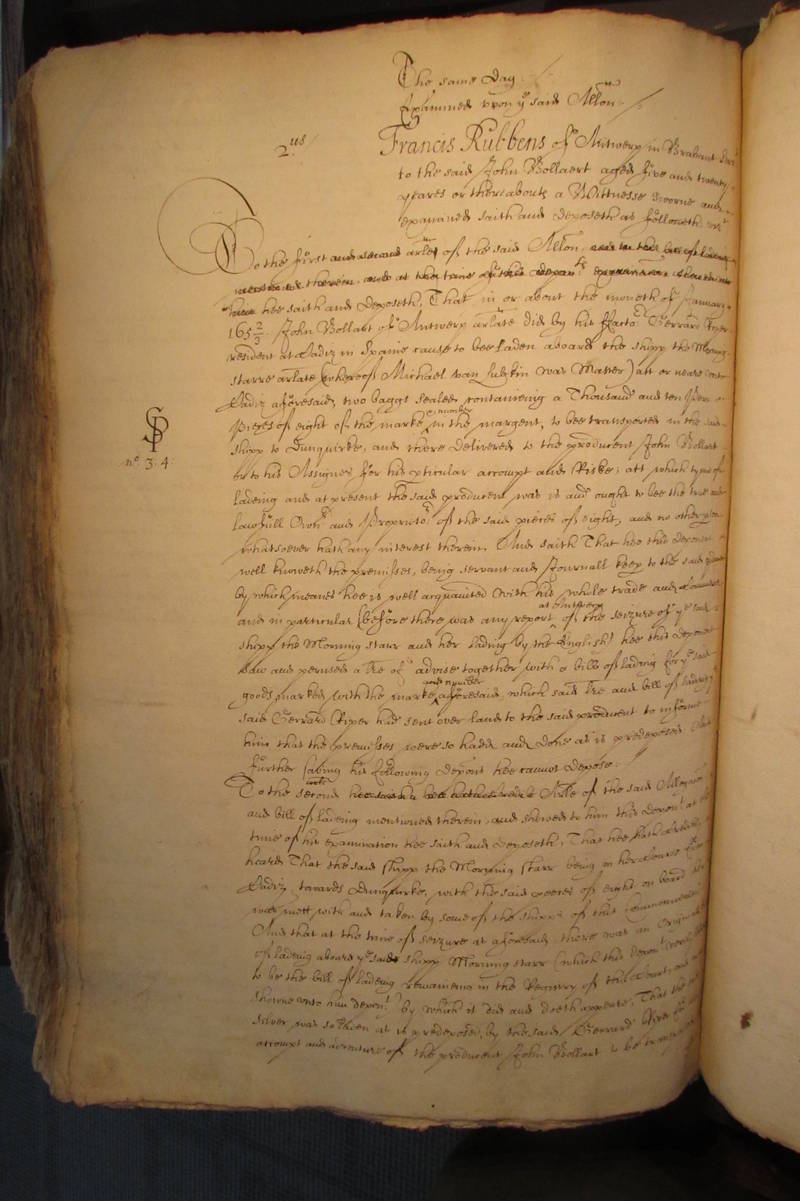 The same Day
Examined upon ye said Allon
2us
Francis Rubbens of Antwerp in Brabant
to the said John Bollaert aged five and twenty
yeares or thereabouts a Wittnesse sworne and
examined saith and deposeth as followeth vizt
To the first and second arles of the said Allon,
therein, and at the time of this
hee saith and deposeth, That in or about the moneth of January
165 2/3 John Bollart of Antwerp arlate did by his ffactor Gerrard Piper
resident at Cadiz in Spaine cause to bee laden aboard the shipp the Morning
starre arlate (whereof Michael van Lubkin was Master) att or neere
Cadiz aforesaid, two baggs sealed containeing a Thousand and ten
Pieces of eight of the marke & number in the margent, to bee transported in the said
SP
no 3: 4:
shipp to Dunquirke, and there delivered to the producent John Bollart
or to his Assignes for his pticular accompt and Riske; att which tyme of
ladeing and at present the said producent was is and ought to bee the true and
lawfull Owner and Proprietor of the said pieces of eight, and no other
whatsoever hath any interest therein. And saith That hee this deponent
well knoweth the premisses, being servant and Journall keep to the said
by which meanes hee is well acquainted with his whole trade and
and in particular (before there was any report at Antwerp of the seizure of ye said
shipp the Morning starr and her lading by the English) hee this deponent
saw and perused a lre of advise together with a bill of lading for ye said
goods marked with the marke and number aforesaid which said lre and bill of lading ye
said Gerrard Piper had sent over land to the said producent to informe
him that the premisses were so haded and done as is predeposed And
further saving his following deposit hee cannot depose.
To the second Arlle of the said Allegation
and bill of ladeing mentioned therein, and shewed to him this depont at the
time of his examination hee saith and deposeth, That hee hath
heard That the said shipp the Morning Starr being in her course from
Cadiz towards Dunquirke, with the said peeces of eight on board her
was mett with and taken by some of the shipps of this Commonwealth
And that at the time of seizure as aforesaid, there was an Originall
of ladeing aboard ye said shipp Morning starr (which this depont
to be the bill of ladeing remaineing in the Registry of this Court and
shewne unto him depont) by which it did and doeth appeare, That the
silver was so then as is predeposed, by the said Gerrard Piper for
accompt and adventure of the producent John Bollart to be